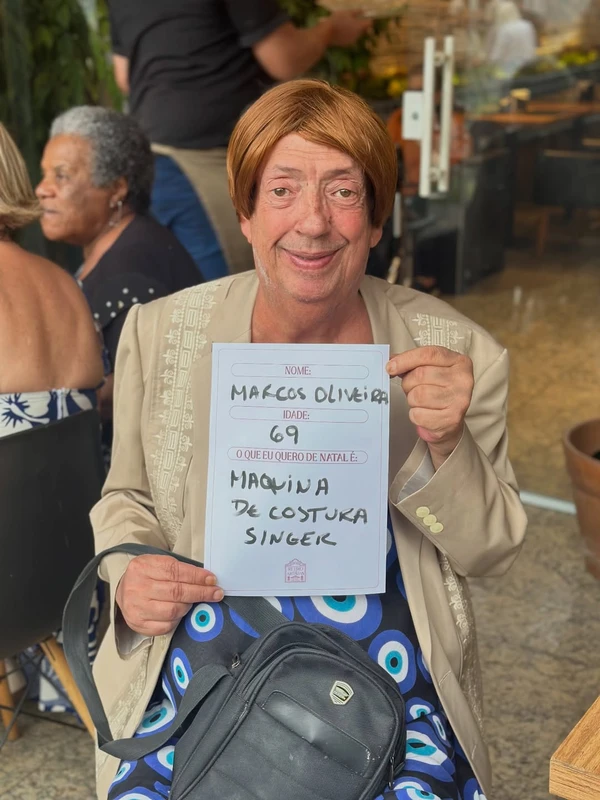 NOME:
MARCOS OLIVEIRA
IDADE:
69
O QUE EU QUERO DE NATAL É:
MAQUINA
DE COSTURA
SINGER